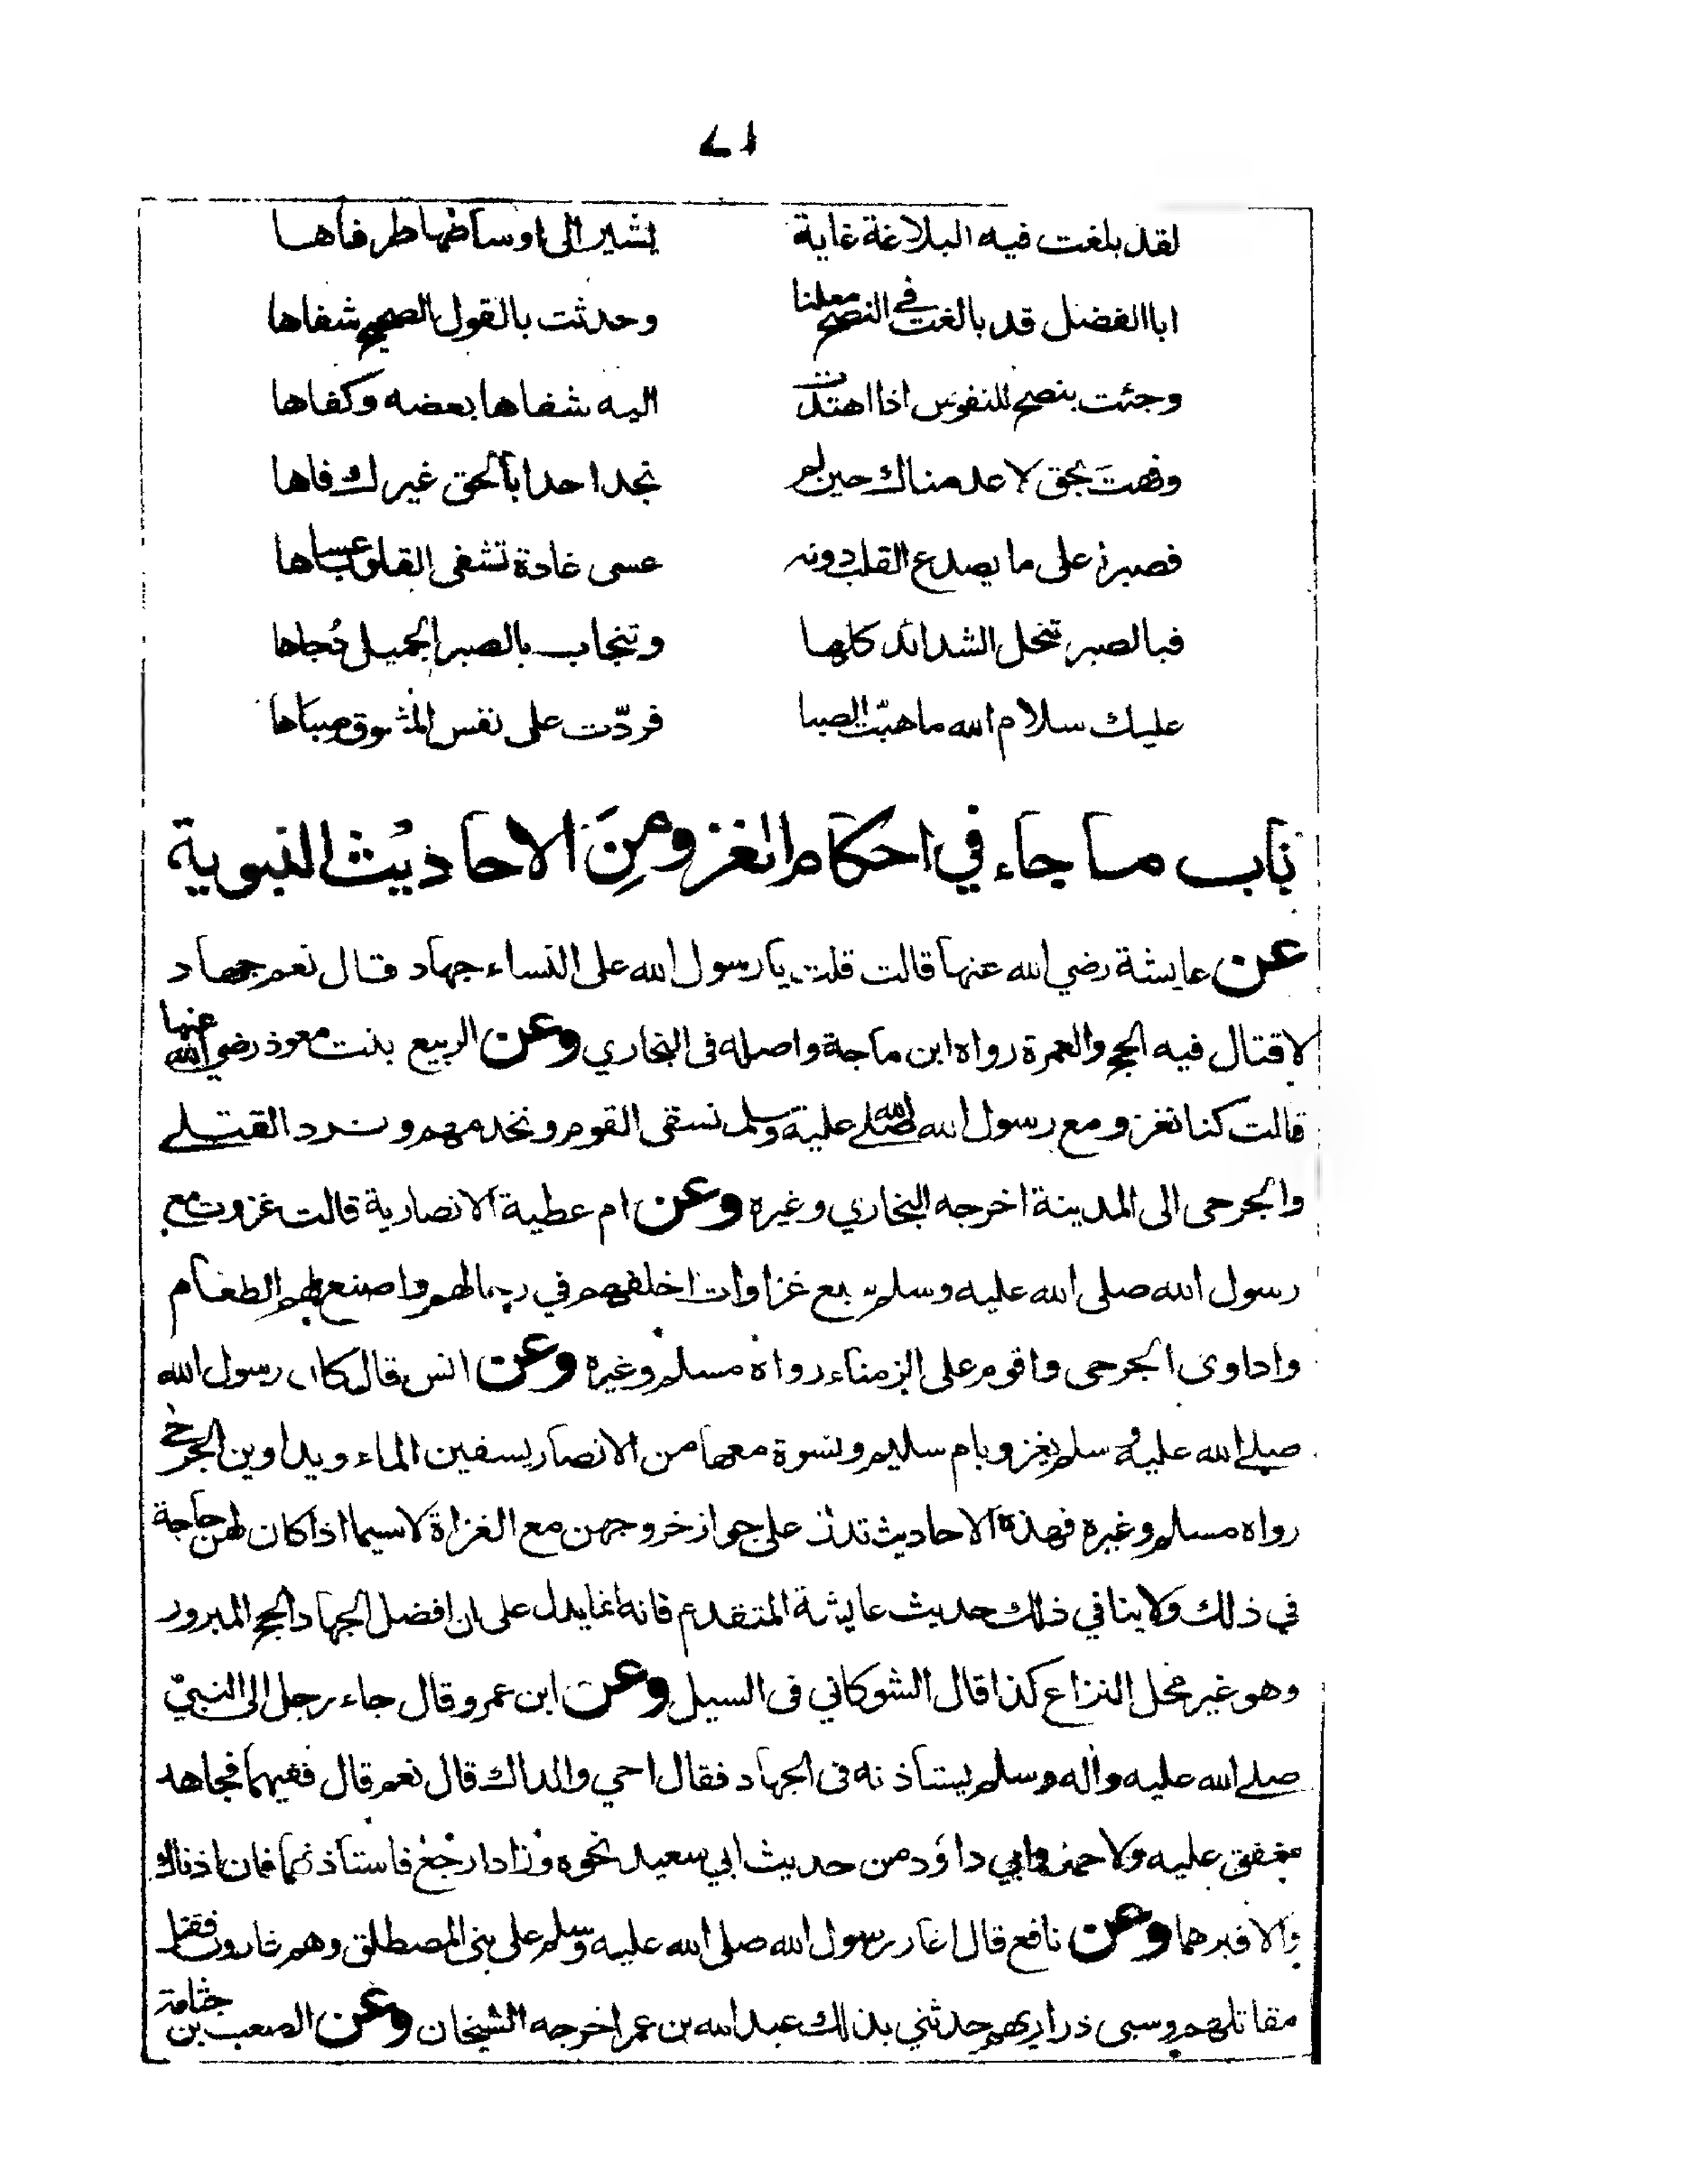 ٧١
لقد بلغت فيه البلاغة غاية يشير الى اوساطها طرفاها
ابا الفضل قد بالغت فى النصح معلنا وحدثت بالقول الصحيح شفاها
وجئت بنصح للنفوس اذا اهتدت اليه شفاها بعضه وكفاها
وفهت بحق لا عدمناك حين لم نجد احدا بالحق غيرك فاها
فصبرا على ما يصدع القلب دونه عسى غادة تشفى القلوب عساها
فبالصبر تنحل الشدائد كلها وتنجاب بالصبر الجميل دُجاها
عليك سلام الله ما هبّت الصبا فردّت على نفس المشوق صباها
باب ما جاء في احكام الغزو مِنَ الاحاديث النبوية
عن عايشة رضي الله عنها قالت قلت يا رسول الله على النساء جهاد قال نعم جهاد
لا قتال فيه الحج والعمرة رواه ابن ماجة واصله فى البخاري وعن الربيع بنت معوذ رضي الله عنها
قالت كنا نغزو مع رسول الله صلى الله علية وسلم نسقى القوم ونخدمهم ونرد القتلے
والجرحى الى المدينة اخرجه البخاري وغيره وعن ام عطية الانصارية قالت غزوت مع
رسول الله صلى الله عليه وسلم سبع غزاوات اخلفهم في رحالهم واصنع لهم الطعام
واداوى الجرحى واقوم على الزمناء رواه مسلم وغيره وعن انس قال كان رسول الله
صلے الله عليه وسلم يغزو بام سليم ونسوة معها من الانصار يسقين الماء ويداوين الجرحے
رواه مسلم وغيره فهذه الاحاديث تدل على جواز خروجهن مع الغزاة لا سيما اذا كان لهن حاجة
في ذلك ولا ينافي ذلك حديث عايشة المتقدم فانه انما يدل على ان افضل الجهاد الحج المبرور
وهو غير محل النزاع كذا قال الشوكاني فى السيل وعن ابن عمرو قال جاء رجل الى النبيّ
صلے الله عليه واله وسلم يستاذنه فى الجهاد فقال احي والداك قال نعم قال ففيهما فجاهد
متفق عليه ولاحمد وابي داؤد من حديث ابي سعيد نحوه وزاد ارجع فاستاذنهما فان اذنا لك
والا فبرهما وعن نافع قال اغار رسول الله صلى الله عليه وسلم على بنى المصطلق وهم غارون فقتل
مقاتلهم وسبى ذراريهم حدثني بذلك عبد الله بن عمر اخرجه الشيخان وعن الصعب بن جثامة